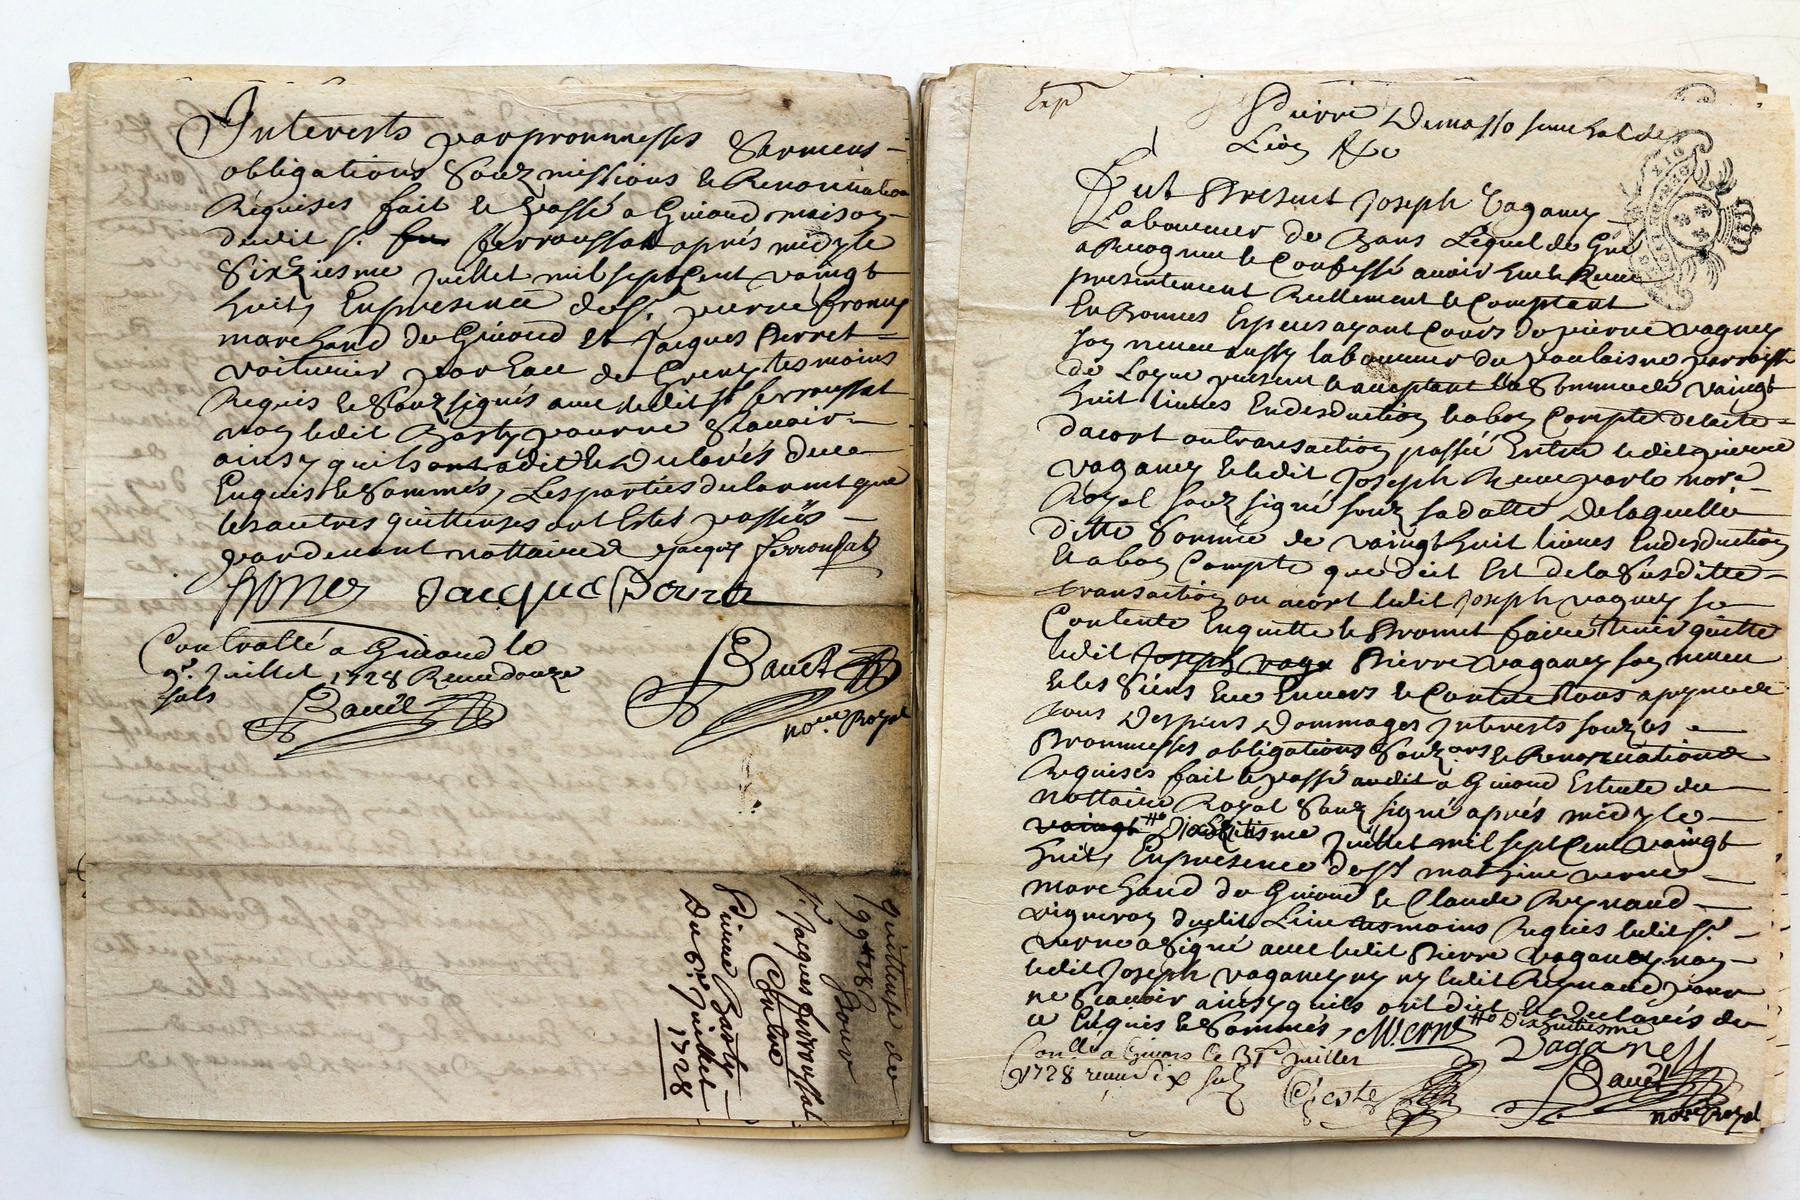 Interests par promesses sermens
obligations Souz missions & Renonciation
Requises fait & passé a Givord maison
dudit Sr. ferroussat après midy le
Sixziesme juillet mil sept Cent vaingt
huit, En presence de Sr. pierre
marchand de Givord Et Jacques Perret
voiturier par Eau de tesmoins
Requis & Souzsignés avec ledit Sr ferroussat
non ledit Basty pour ne Scavoir
ainsy quils ont dit & Declarés de ce
Enquis & Sommés, Les parties declarent que
les autres quittenses ont Estés passés
pardevant nottaire Jacques ferroussat
Jacque Perret
Controllé a Givord le
9e. juillet 1728 Receu douze
sols
Bauét
Bauét
nore. Royal
quittense de
Pour
Sr. Jacques ferroussat
Contre
Pierre Basty
Du 6me Juillet
1728
Exp
Pierre Dumas
Lion &c
fut Present Joseph Vaganey
Laboureur de Lequel de Gré
a Recognu & Confessé avoir heu & Receu
presentement Reellement & Comptant
En Bonnes Especes ayant Cours de pierre vaganey
son neveu aussy laboureur du parroisse
de present & acceptant la Somme de vaingt
huit livres En desduction & a bon Compte de
dacort ou transaction passée Entre ledit pierre
vaganey & ledit Joseph Receue par le nore
Royal souz signé souz sa datte De laquelle
ditte Somme de vaingt huit livres En desduction
& a bon Compte que dit Est de la Susditte
transaction ou acort ledit Joseph vaganey se
Contente En quitte & Promet faire tenir quitte
ledit Joseph vaga Pierre vaganey son neveu
& les Siens Envers & Contre tous a peyne de
tous Despens Dommages Interests souz les
Promesses obligations Souz ons & Renonciations
Requises fait & passé audit a Givord Estude du
nottaire Royal Souz signé après midy le
vaingt Dixhuitiesme Juillet mil sept Cent vaingt
huit, En presence de Sr verne
marchand de Givord & Claude Reynaud
vigneron dudit Lieu tesmoins Requis ledit Sr.
verne a Signé avec ledit Pierre vaganey non
ledit Joseph vaganey ny ledit Reynaud pour
ne Scavoir ainsy quils ont dit & declarés de
ce Enquis & Sommés, M verne Dixhuitiesme
Conllé a Givors le 31e juillet Vaganey
1728 receu six sols
Bauét
nore Royal